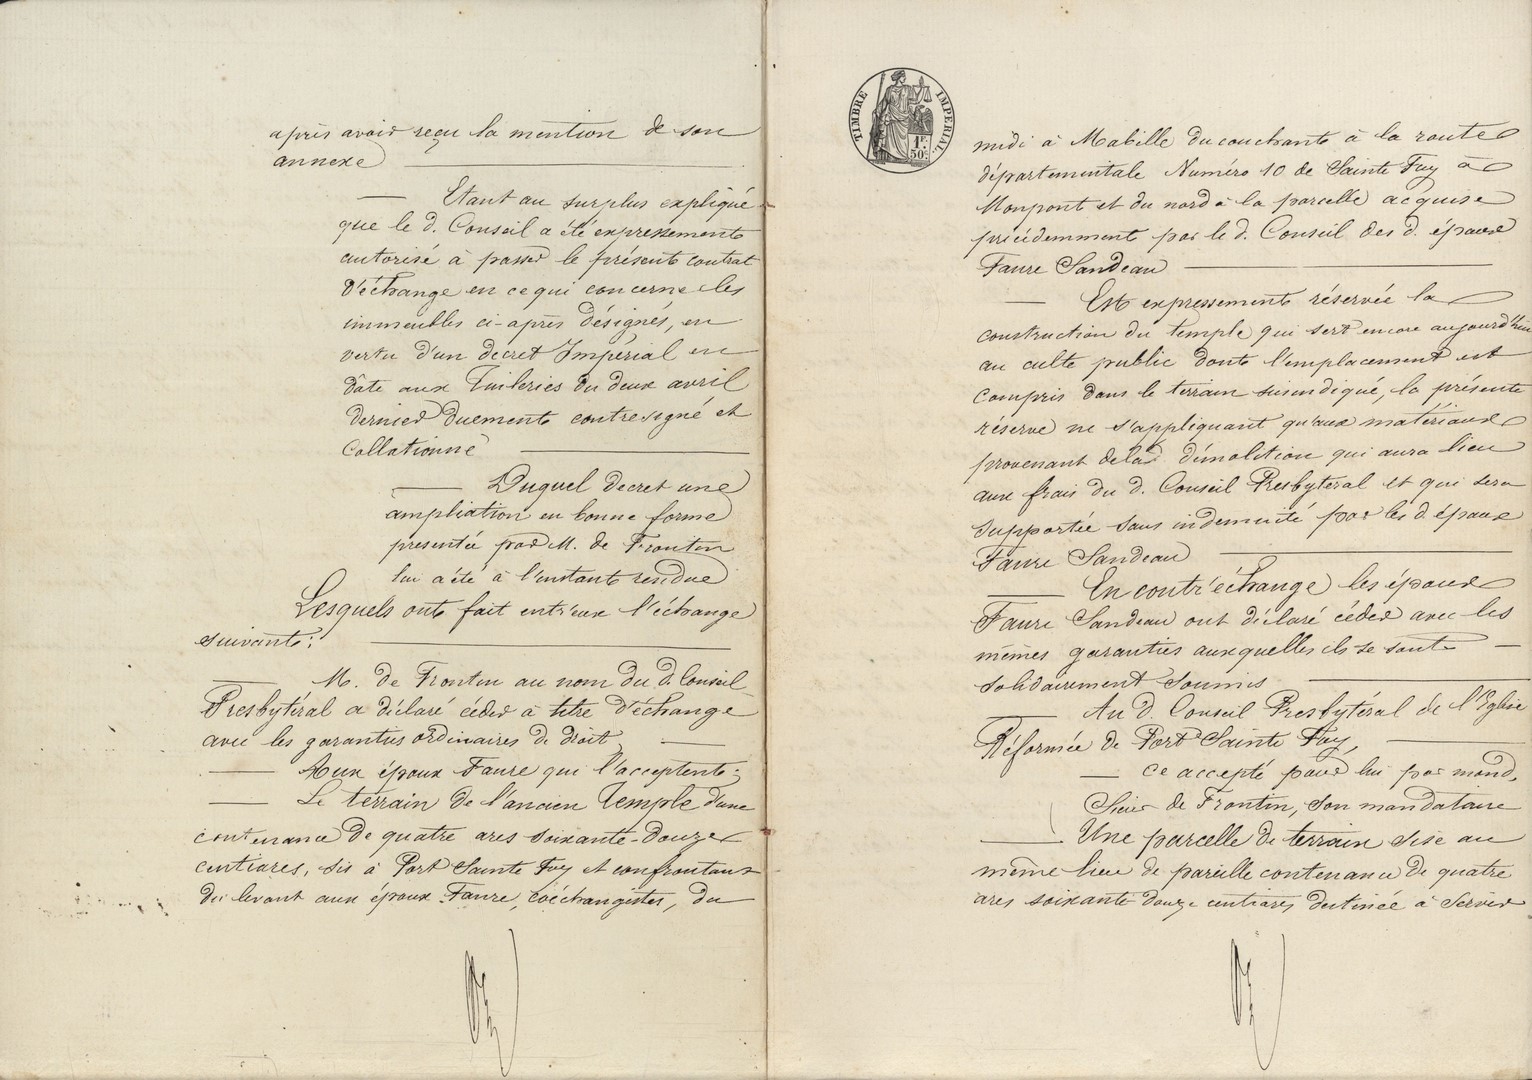 après avoir reçu la mention de son
annexe
Etant au surplus expliqué
que le d. Conseil a été expressement
autorisé à passer le présent contrat
d'échange en ce qui concerne les
immeubles ci-après désignés, en
vertu d'un decret Impérial en
date aux Tuileries du deux avril
dernier duement contresigné et
Collationné
Duquel decret une
ampliation en bonne forme
presentée par M. de Frontin
lui a été à l'instant rendue
Lesquels ont fait entr'eux l'échange
suivant:
M. de Frontin au nom du d. Conseil
Presbytéral a déclaré céder à titre d'échange
avec les garanties ordinaires de droit
Aux époux Faure qui l'acceptent;
Le terrain de l'ancien Temple d'une
contenance de quatre ares soixante-douze
centiares, sis à Port Sainte Foy et confrontant
du levant aux époux Faure, coéchangistes, du
TIMBRE IMPERIAL
1F.
50c.
midi à Mabille du couchant à la route
départementale Numéro 10 de Sainte Foy à
Monpont et du nord à la parcelle acquise
précédemment par le d. Conseil des d. époux
Faure Sandeau
Est expressement réservée la
construction du temple qui sert encore aujourd'hui
au culte public dont l'emplacement est
compris dans le terrain susindiqué, la présente
réserve ne s'appliquant qu'aux matériaux
provenant de la démolition qui aura lieu
aux frais du d. Conseil Presbytéral et qui sera
supportée sans indemnité par les d. époux
Faure Sandeau
En contr'échange les époux
Faure Sandeau ont déclaré céder avec les
mêmes garanties auxquelles ils se sont
solidairement soumis
Au d. Conseil Presbytéral de l'Eglise
Réformée de Port Sainte Foy,
ce accepté pour lui par mond.
Sieur de Frontin, son mandataire
Une parcelle de terrain sise au
même lieu de pareille contenance de quatre
ares soixante douze centiares destinée à servir